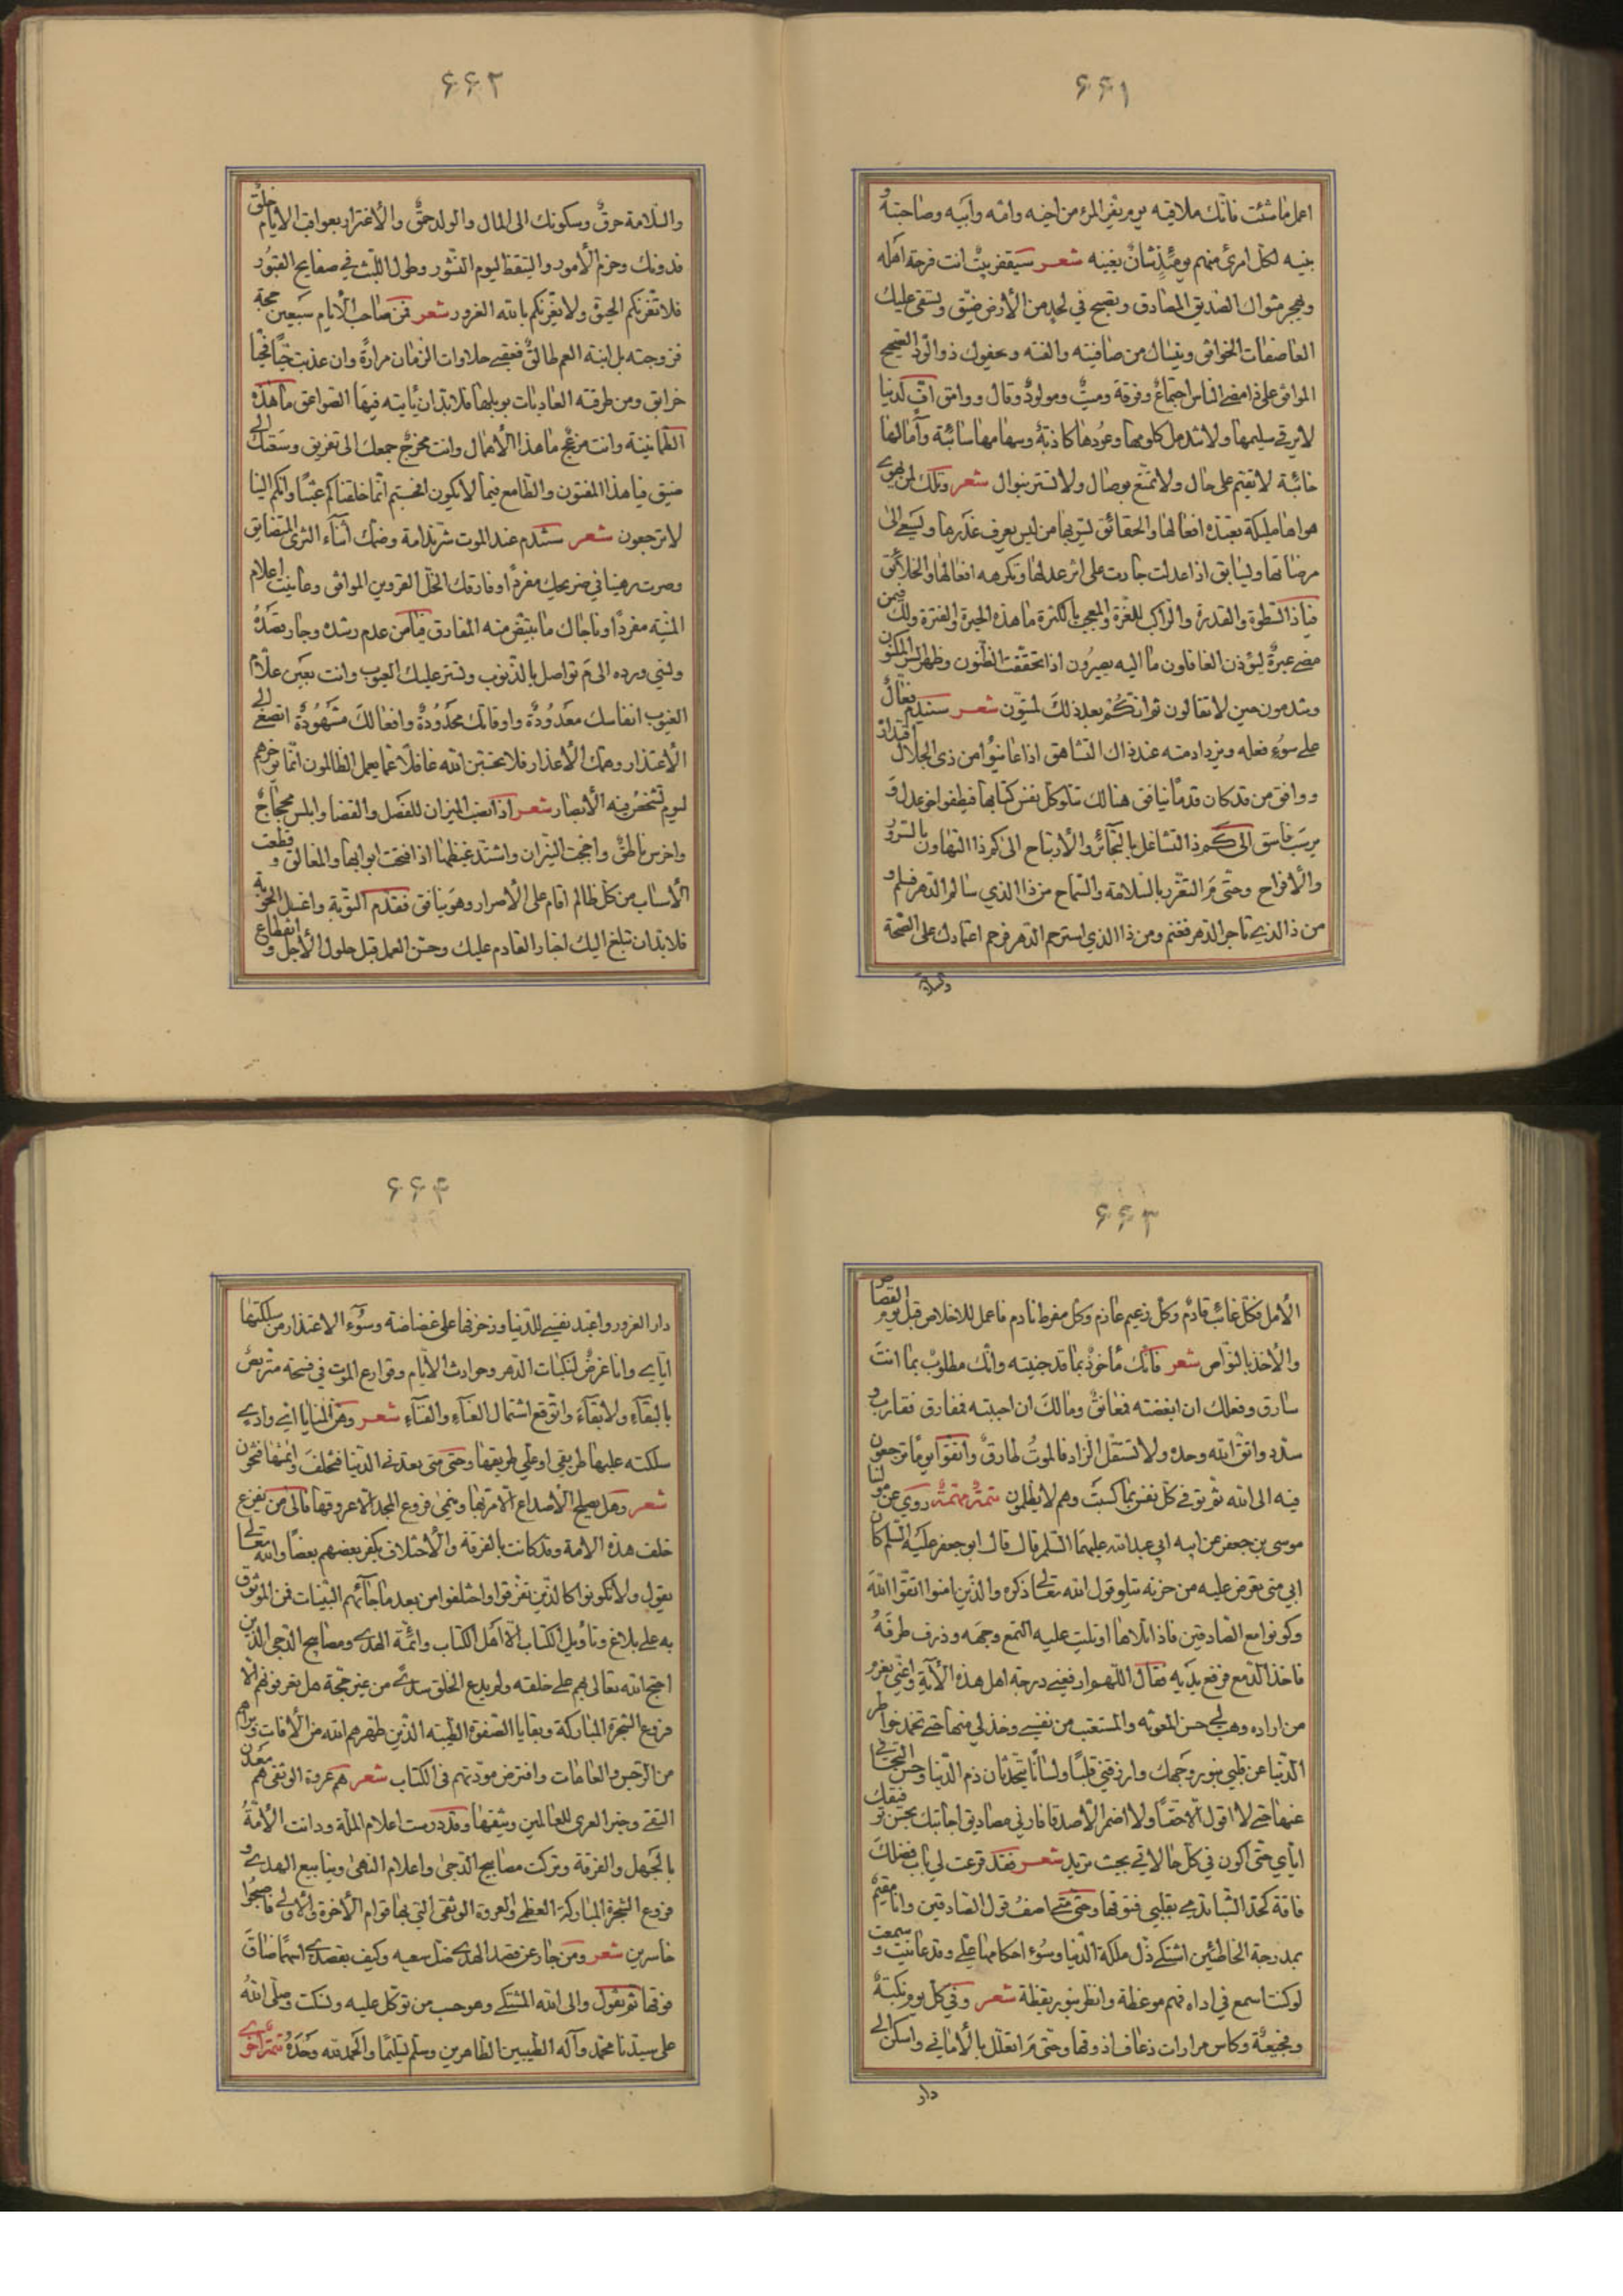 ۶۶۱
اعمل ما شئت فانك ملاقيه يوم يفر المرء من اخيه وامه وابيه وصاحبته و
بنيه لكل امرئ منهم يومئذ شأن يغنيه شعر سيقفر بيت انت فرحة اهله
ويهجر مثواك الصديق المصادق وتصبح في لحد من الأرض ضيق وتسفى عليك
العاصفات الخوافق وينساك من صافيته والفته ويجفوك ذو الود الصحيح
الموافق على ذا مضى الناس اجتماع وفرقة وميت ومولود وقال ووامق اف لدنيا
لا يرقى سليمها ولا تندمل كلومها وعودها كاذبة وسهامها صائبة وآمالها
خائبة لا تقيم على حال ولا تمتع بوصال ولا تسر بنوال شعر وتلك لمن يهوى
هواها مليكة تعبده افعالها والحقائق يسر بها من ليس يعرف غدرها ويسعى الى
مرضاتها ويسابق اذا عدلت جارت على اثر عدلها وتكرهه افعالها والخلائق
فيا ذا السطوة والقدرة والراكب للغرة والمعجب بالكثرة ما هذه الحيرة والفترة ولك فيمن
مضى عبرة ليؤذن الغافلون ما اليه يصيرون اذا تحققت الظنون وظهر السر المكنون
وتندمون حين لا تقالون ثم انكم بعد ذلك لميتون شعر سيندم فعال
على سوء فعله ويزداد منه عند ذاك التشاهق اذا عاينوا من ذي الجلال اقتداره
وذو قوة من كان قدما يدافق هنالك تتلو كل نفس كتابها فيطفو اخو عدل و
يرسب فاسق الى كم ذا التشاغل بالتجائر والأرباح الى كم ذا التهاون بالسرور
والأفراح وحتى م التغرر بالسلامة والنجاح من ذا الذي سالم الدهر فسلم و
من ذا الذي تاجر الدهر فغنم ومن ذا الذي استرحم الدهر فرحم اعتمادك على الصحة
والسلامة
۶۶۲
والسلامة خرق وسكونك الى المال والولد حمق والأغترار بعواقب الأيام خلق
فدونك وحزم الأمور والتيقظ ليوم النشور وطول اللبث في صفايح القبور
فلا تغرنكم الحيوة ولا يغرنكم بالله الغرور شعر فمن صاحب الأيام سبعين حجة
فزوجته بل ابنة العم طالق فعقبى حلاوات الزمان مرارة وان عذبت حينا فحينا
خرابق ومن طرقته الغاديات بويلها فلا بد ان يأتيه فيها الصواعق ما هذه
الطمانينة وانت مزعج ما هذا الأهمال وانت مخرج جمعك الى تفريق وسعتك الى
ضيق فيا هذا المفتون والطامع فيما لا يكون افحسبتم انما خلقناكم عبثا وانكم الينا
لا ترجعون شعر ستندم عند الموت شر ندامة وضمك اثناء الثرى المتضايق
وصرت رهينا في ضريحك مفردا وفارقك الخل القرين الموافق وعاينت اعلام
المنية مفردا وفاجاك ما يبيض منه المفارق فيا من عدم رشده وجار قصده
ونسي ورده الى م تواصل بالذنوب وتستر عليك العيوب وانت بعين علام
الغيوب انفاسك معدودة واوقاتك محدودة وافعالك مشهودة اتصغي الى
الأعتذار وهمك الأعذار فلا تحسبن الله غافلا عما يعمل الظالمون انما يؤخرهم
ليوم تشخص فيه الأبصار شعر اذا نصب الميزان للفصل والقضا وابلس محجاج
واخرس ناطق واججت النيران واشتد غيظها اذا فتحت ابوابها والمغالق وقطعت
الأسباب من كل ظالم اقام على الأصرار وهو ينافق فقدم التوبة واغسل الحوبة
فلا بد ان تبلغ اليك اخبار القادم عليك وحسن العمل قبل حلول الأجل وانقطاع
۶۶۳
الأمل فكل غائب قادم وكل زعيم غارم وكل مفرط نادم فاعمل للاخلاص قبل يوم القصاص
والأخذ بالنواص شعر فانك مأخوذ بما قد جنيته وانك مطلوب بما انت
سارق وفعلك ان ابغضته فمعانق ومالك ان احببته فمفارق فقارب و
سدد واتق الله وحده ولا تستقل الزاد فالموت طارق واتقوا يوما ترجعون
فيه الى الله ثم توفى كل نفس بما كسبت وهم لا يظلمون تتمة مهمة روي عن مولنا
موسى بن جعفر عن ابيه ابي عبد الله عليهما السلم قال قال ابو جعفر عليه السلم كان
ابي متى يعرض عليه من حزنه يتلو قول الله تعالى ذكره والذين امنوا اتقوا الله
وكونوا مع الصادقين فاذا تلاها او تليت عليه التمع وجهه وذرف طرفه
فاخذ الدمع فرفع يديه فقال اللهم ارفعني درجة اهل هذه الأية واعني بعزم
من اراده وهب لي حسن المعونة والمستعتب من نفسي وخذ لي منها حتى تخمد خواطر
الدنيا عن قلبي بنور وجهك وارزقني قلبا ولسانا يتحدثان ذم الدنيا وحسن التجافي
عنها حتى لا اقول الا حقا ولا اضمر الا صدقا فارني مصاديق اجابتك بحسن توفيقك
اياي حتى اكون في كل حالاتي بحيث تريد شعر فقد قرعت لي باب فضلك
فاقة كحد السنا تدمي بقلبي فتوقها وحتى متى اصف قول الصادقين وانا مقيم
بمدرجة الخاطئين اشتكي ذل ملكة الدنيا وسوء احكامها علي وقد عاينت وسمعت
لو كنت اسمع في اداه فهم موعظة وانظر بنور يقظة شعر وفي كل يوم نكبة
وفجيعة وكاس مرارات ذعاف اذوقها وحتى م اتعلل بالأماني واسكن الى
دار
۶۶۴
دار الغرور واعبد نفسي للدنيا وزخرفها على غضاضة وسوء الاعتذار من سلكتها
اياي وانا غرض لنكبات الدهر وحوادث الأيام وقوارع الموت في فسحة متربص
بالبقاء ولا بقاء واتوقع اشتمال العناء والفناء شعر وهن المنايا اي وادي
سلكته عليها طريقي او علي طريقها وحتى متى يعدني الدنيا فتخلف وائتمنها فتخون
شعر وهل يصلح الأصداع الا مرئبها وينمي فروع المجد الا عروقها فالى من يفزع
خلف هذه الامة وقد كانت بالفرقة والأختلاف يكفر بعضهم بعضا والله تعالى
يقول ولا تكونوا كالذين تفرقوا واختلفوا من بعد ما جائهم البينات فمن الموثوق
به على بلاغ وتأويل الكتاب الا اهل الكتاب وائمة الهدى ومصابيح الدجى الذين
احتج الله تعالى بهم على خلقه ولم يدع الخلق سدى من غير حجة هل تعرفونهم الا
فروع الشجرة المباركة وبقايا الصفوة الطيبة الذين طهرهم الله من الأفات وبراهم
من الرجس والعاهات وافترض مودتهم في الكتاب شعر هم عروة الوثقى هم معدن
التقى وخير العرى للعالمين وثيقها وقد درست اعلام الملة ودانت الأمة
بالجهل والفرقة وتركت مصابيح الدجى واعلام النهى وينابيع الهدى و
فروع الشجرة المباركة العظمى والعروة الوثقى التي بها قوام الأخرة والأولى فاصبحوا
خاسرين شعر ومن جار عن قصد الهدى ضل سعيه وكيف يقصدى اسهما ضاق
فوقها ثم يقول والى الله المشتكى وهو حسب من توكل عليه وسكت وصلى الله
على سيدنا محمد وآله الطيبين الطاهرين وسلم تسليما والحمد لله وحده تتمة اخرى